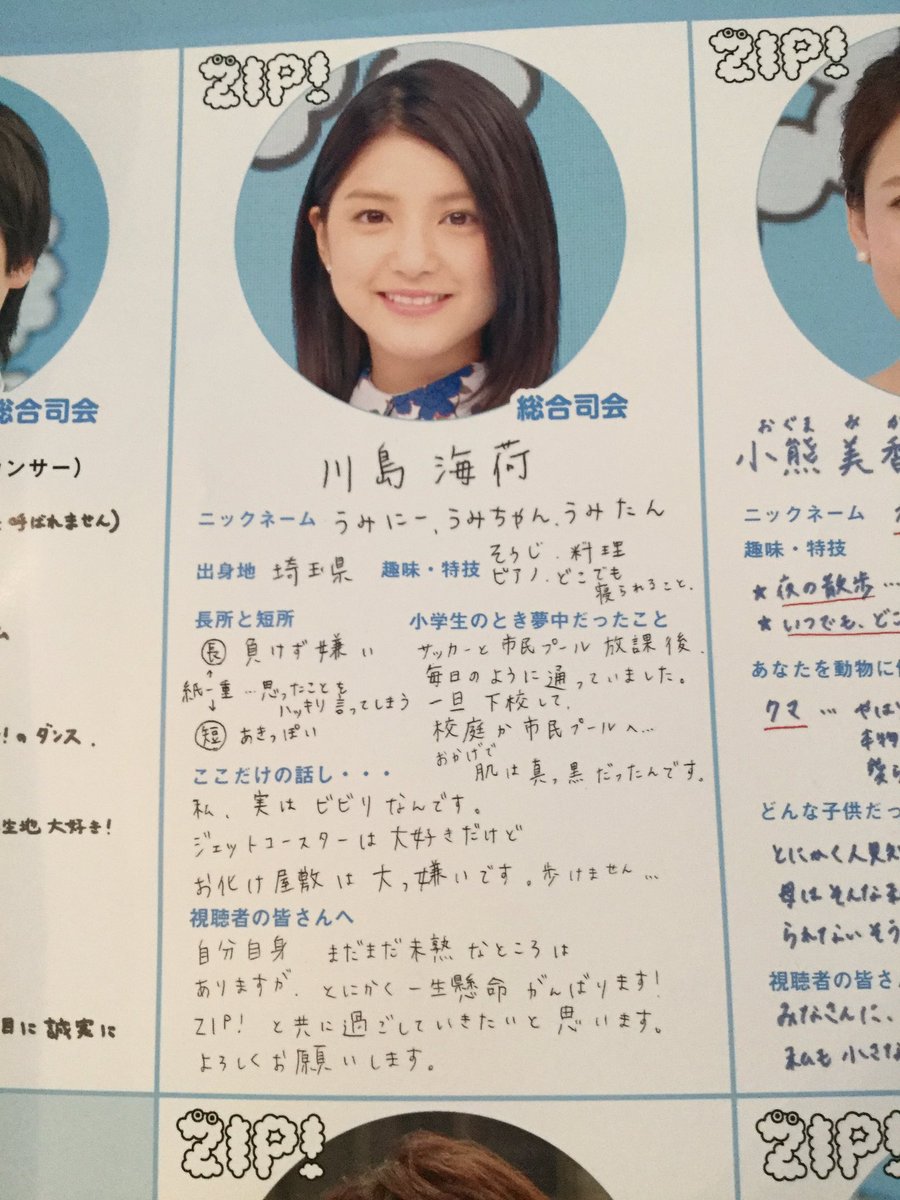 ZIP!
総合司会
ウンサー）
呼ばれません)
ム
!のダンス.
生地 大好き!
目に 誠実に
ZIP!
総合司会
川島 海荷
ニックネーム うみにー、うみちゃん、うみたん
出身地 埼玉県
趣味・特技 そうじ、料理
ピアノ、どこでも
寝られること、
長所と短所
長 負けず嫌い
紙一重…思ったことを
ハッキリ言ってしまう
短 あきっぽい
小学生のとき夢中だったこと
サッカーと市民プール 放課後、
毎日のように通っていました。
一旦 下校して、
校庭か市民プールへ…
おかげで
肌は真っ黒だったんです。
ここだけの話し・・・
私、実はビビリなんです。
ジェットコースターは大好きだけど
お化け屋敷は大っ嫌いです。歩けません…
視聴者の皆さんへ
自分自身 まだまだ未熟なところは
ありますが、とにかく一生懸命がんばります!
ZIP! と共に過ごしていきたいと思います。
よろしくお願いします。
ZIP!
おぐま みか
小熊美香
ニックネーム
趣味・特技
★夜の散歩…
★いつでも、どこ
あなたを動物に
クマ… やは
本物
どんな子供だっ
とにかく人見知
母はそんな私
られてないそう
視聴者の皆さ
みなさんに、
私も小さな
ZIP!
ZIP!